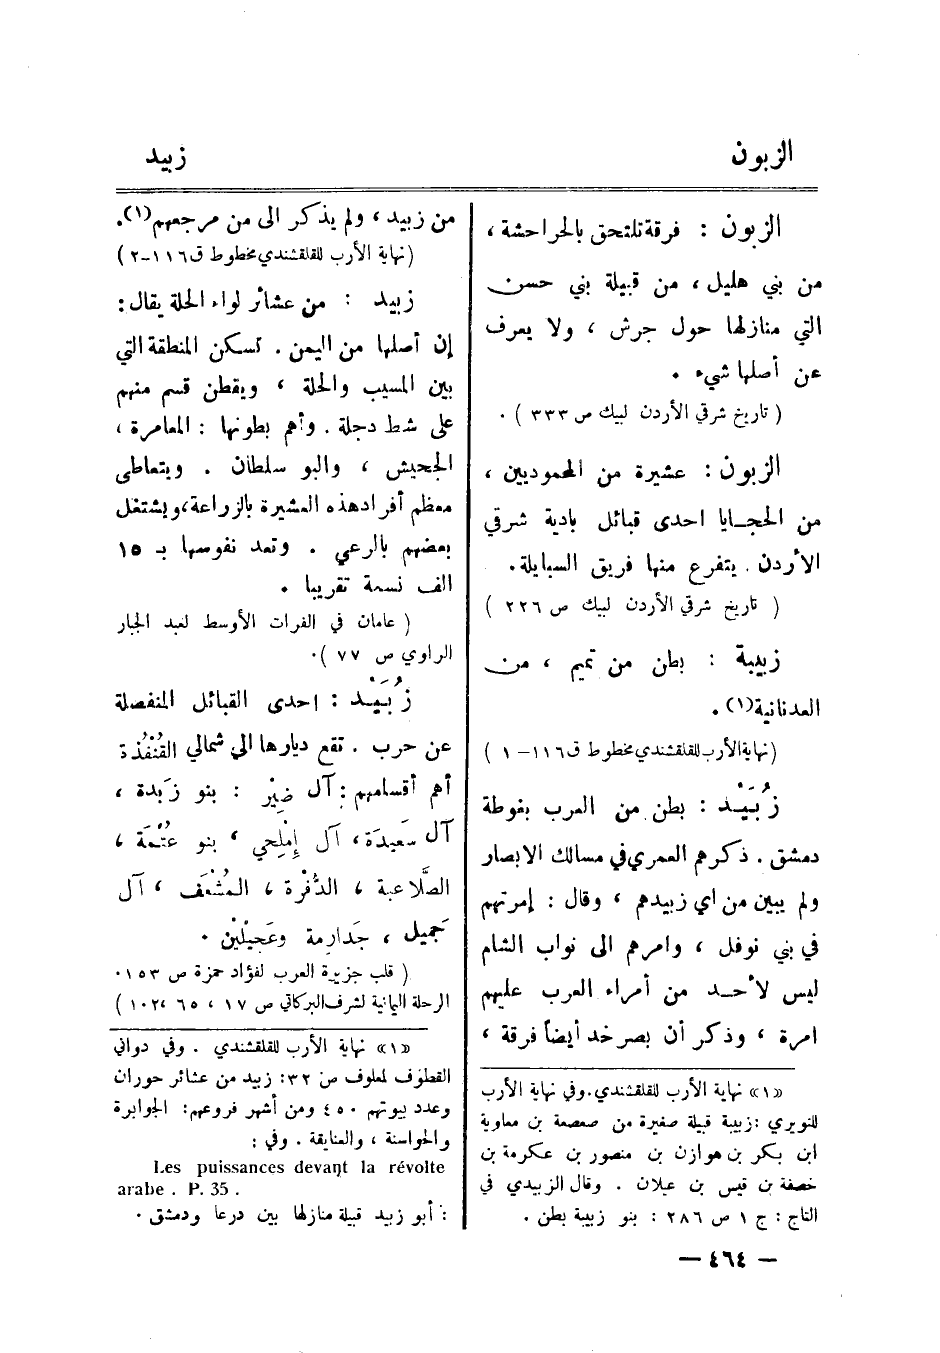 الزبون
زبيد
الزبون : فرقة تلتحق بالحراحشة ،
من بني هليل ، من قبيلة بني حسن
التي منازلها حول جرش ، ولا يعرف
عن أصلها شيء .
( تاريخ شرقي الأردن لبيك ص ٣٣٣ ) .
الزبون : عشيرة من المحموديين ،
من الحجايا احدى قبائل بادية شرقي
الأردن . يتفرع منها فريق السبايلة .
( تاريخ شرقي الأردن لبيك ص ٢٢٦ )
زبيبة : بطن من تميم ، من
العدنانية(١) .
(نهاية الأرب للقلقشندي مخطوط ق ١١٦ – ١ )
زُبَيْد : بطن من العرب بغوطة
دمشق . ذكرهم العمري في مسالك الابصار
ولم يبين من اي زبيدهم ، وقال : إمرتهم
في بني نوفل ، وامرهم الى نواب الشام
ليس لأحد من أمراء العرب عليهم
امرة ، وذكر أن بصرخد أيضاً فرقة ،
«١» نهاية الأرب للقلقشندي . وفي نهاية الأرب
للنويري : زبيبة قبيلة صغيرة من صعصعة بن معاوية
ابن بكر بن هوازن بن منصور بن عكرمة بن
خصفة بن قيس بن عيلان . وقال الزبيدي في
التاج : ج ١ ص ٢٨٦ : بنو زبيبة بطن .
من زبيد ، ولم يذكر الى من مرجعهم(١).
( نهاية الأرب للقلقشندي مخطوط ق ١١٦–٢ )
زبيد : من عشائر لواء الحلة يقال :
إن أصلها من اليمن . تسكن المنطقة التي
بين المسيب والحلة ، ويقطن قسم منهم
على شط دجلة . وأهم بطونها : المعامرة ،
الجحيش ، والبو سلطان . ويتعاطى
معظم أفراد هذه العشيرة بالزراعة، ويشتغل
بعضهم بالرعي . وتعد نفوسها بـ ١٥
الف نسمة تقريبا .
( عامان في الفرات الأوسط لعبد الجبار
الراوي ص ٧٧ ).
زُبَيْد : احدى القبائل المنفصلة
عن حرب . تقع ديارها الى شمالي القُنْفُذة
أهم أقسامهم : آل ضِيْر : بنو زَبدة ،
آل سَعيدَة، آل إملحي ، بنو عُتْمَة ،
الصَّلاعبة ، الذُّفْرة ، المُشْعَف ، آل
جَميل ، جَدارمة وعَجيْلين .
( قلب جزيرة العرب لفؤاد حمزة ص ١٥٣ .
الرحلة اليمانية لشرف البركاتي ص ١٧ ، ٦٥ ، ١٠٢ )
«١» نهاية الأرب للقلقشندي . وفي دواني
القطوف لمعلوف ص ٣٢ : زبيد من عشائر حوران
وعدد بيوتهم ٤٥٠ ومن أشهر فروعهم : الجوابرة
والحواسنة ، والعنابقة . وفي :
Les puissances devant la révolte
arabe . P. 35 .
: أبو زبيد قبيلة منازلها بين درعا ودمشق .
— ٤٦٤ —